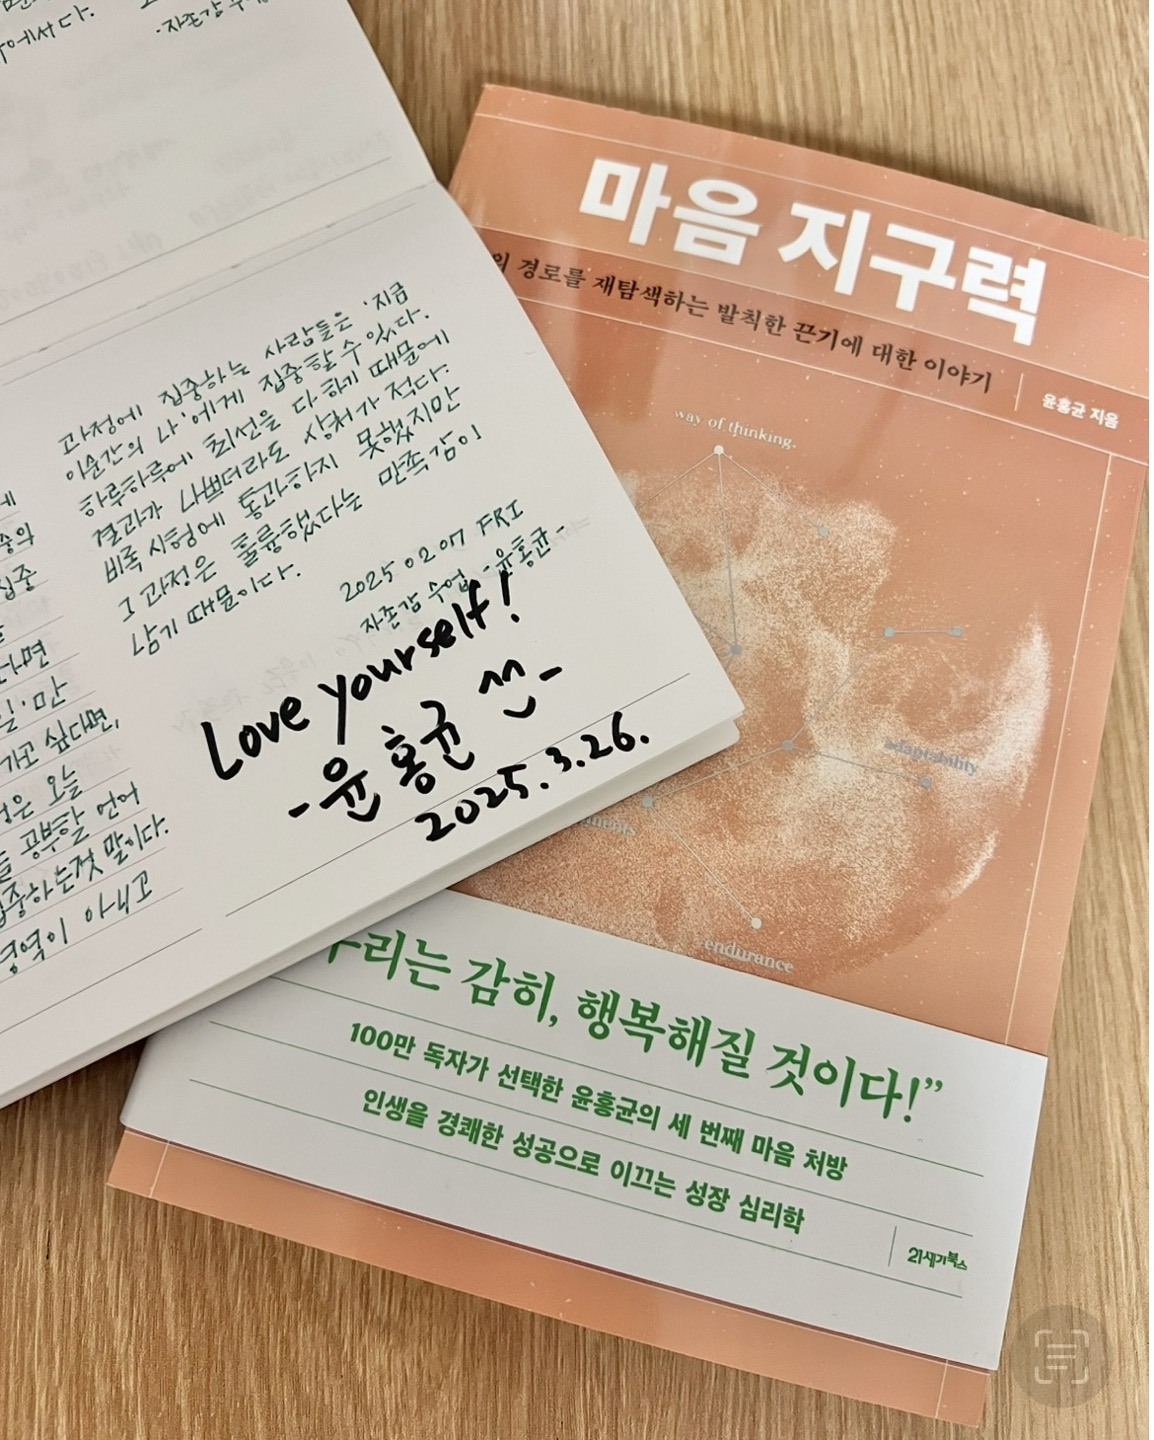 자존감 수
과정에 집중하는 사람들은 '지금
이순간의 나'에게 집중할 수 있다.
하루하루에 최선을 다하기 때문에
결과가 나쁘더라도 상처가 적다.
비록 시험에 통과하지 못했지만
그 과정은 훌륭했다는 만족감이
남기 때문이다.
2025 02 07 FRI
자존감 수업 -윤홍균-
Love yourself!
-윤홍균 ^^-
2025.3.26.
고 싶다면,
은 오늘
공부할 언어
집중하는것 말이다.
영역이 아니고
마음 지구력
의 경로를 재탐색하는 발칙한 끈기에 대한 이야기
윤홍균 지음
way of thinking.
adaptability
endurance
우리는 감히, 행복해질 것이다!”
100만 독자가 선택한 윤홍균의 세 번째 마음 처방
인생을 경쾌한 성공으로 이끄는 성장 심리학
21세기북스